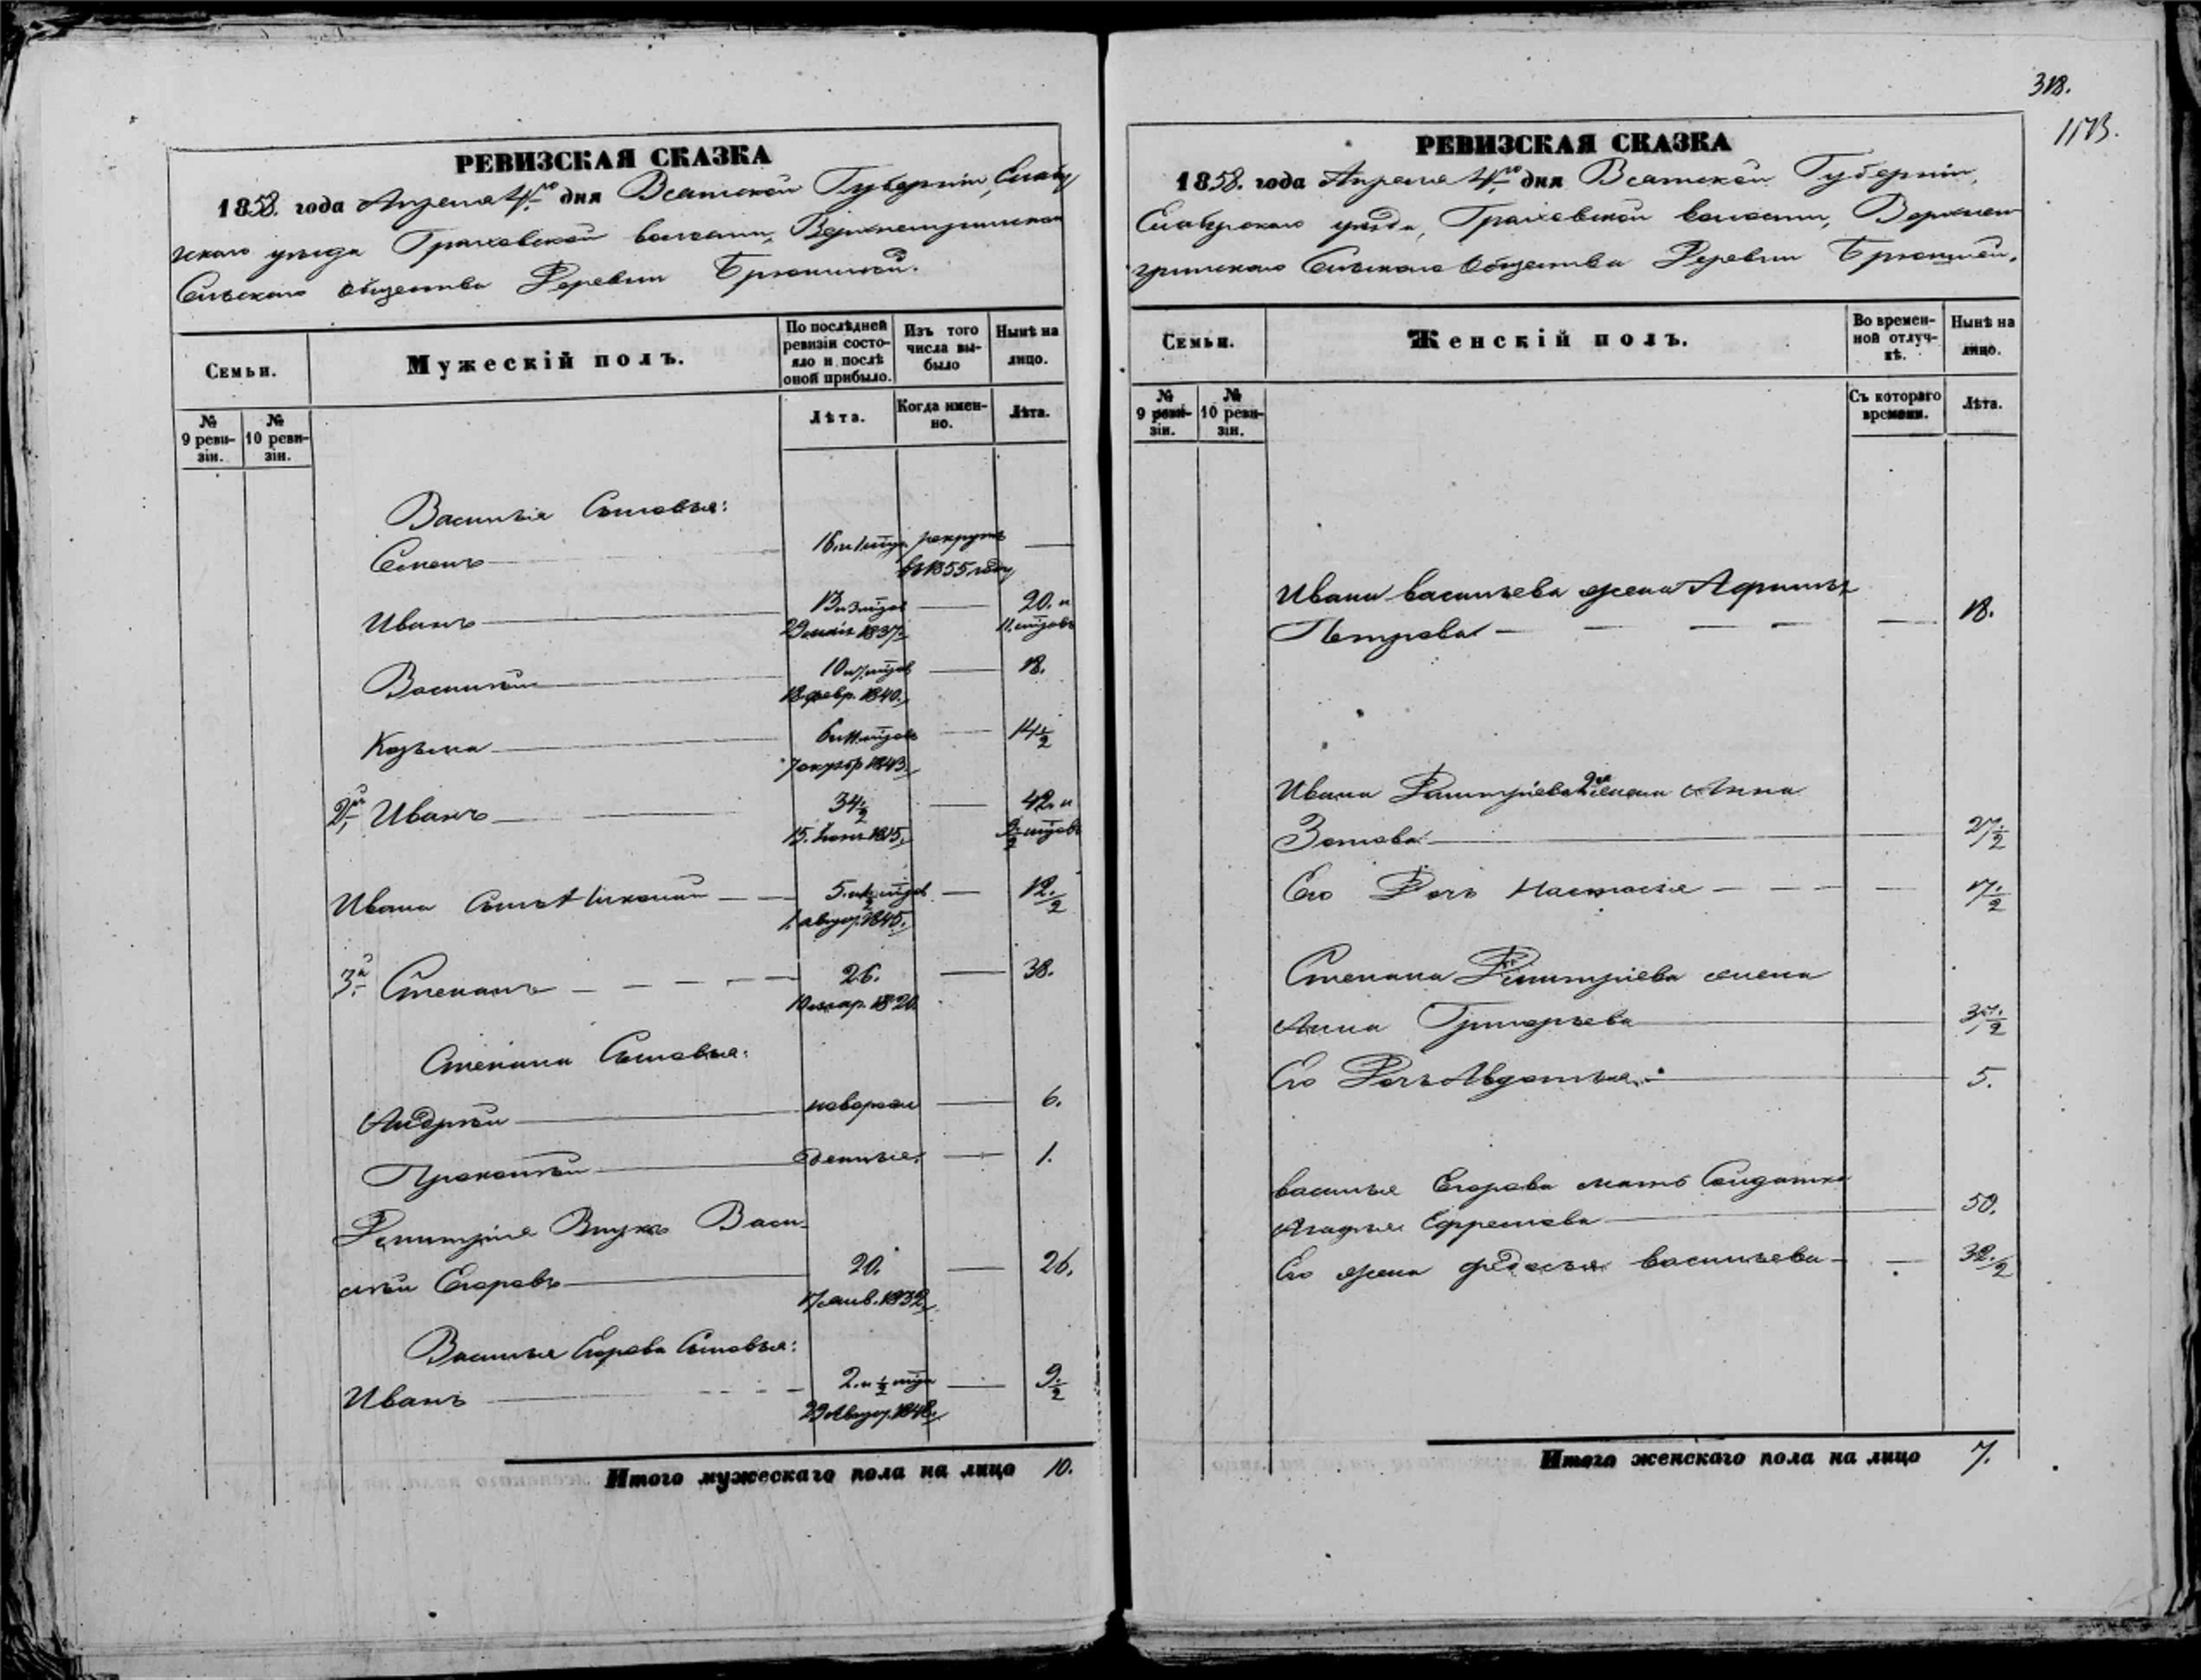 РЕВИЗСКАЯ СКАЗКА
1858. года Апреля 4го дня Вятской Губерніи, Елабу
жскаго уезда Граховской волости, Верхнеигринскаго
Сельскаго Общества Деревни Брюшиной.
Семьи.
Мужескій полъ.
По послѣдней ревизіи состояло и послѣ оной прибыло.
Изъ того числа выбыло
Нынѣ на лицо.
№ 9 ревизіи.
№ 10 ревизіи.
Лѣта.
Когда именно.
Лѣта.
Василья Сыновья:
Семенъ 16. и 1 мца рекрутъ
въ 1855 году
Иванъ 13 и 3 мцов 20. и
29 мая 1837. 11. мцовъ
Василій 10 и 7 мцов 18.
18. февр. 1840.
Козьма 6 и 11 мцовъ 14 1/2
7 октяб 1843.
2й Иванъ 34 1/2 42. и
15. Іюн. 1815. 9 1/2 мцовъ
Ивана сынъ 5. и 1/2 мцов 12. 1/2
1. авгус. 1845.
3й Степанъ 26. 38.
1820.
Степана Сыновья:
Андрей новорож 6.
Прокопей денные. 1.
Дмитрія Внукъ Васи-
лей Егоровъ 20. 26.
17 янв. 1832.
Василья Егорова Сыновья:
Иванъ 2. и 1/2 мца 9 1/2
29 Авгус. 1848.
Итого мужескаго пола на лицо 10.
318.
1173.
РЕВИЗСКАЯ СКАЗКА
1858. года Апреля 4го дня Вятской Губерніи,
Елабужскаго уезда, Граховской волости, Верхнеи-
гринскаго Сельскаго Общества Деревни Брюшиной.
Семьи.
Женскій полъ.
Во временной отлучкѣ.
Нынѣ на лицо.
№ 9 ревизіи.
№ 10 ревизіи.
Съ котораго времени.
Лѣта.
Ивана васильева жена
Петрова 18.
Ивана Дмитріева 2я жена Анна
Зотова 27 1/2
Его Дочь Настасія 17. 1/2
Степана Дмитріева жена
Анна Григорьева 37. 1/2
Его Дочь Авдотья. 5.
василья Егорова мать Солдатка
Агафья Ефремова 50.
Его жена федосья васильева 32. 1/2
Итого женскаго пола на лицо 7.